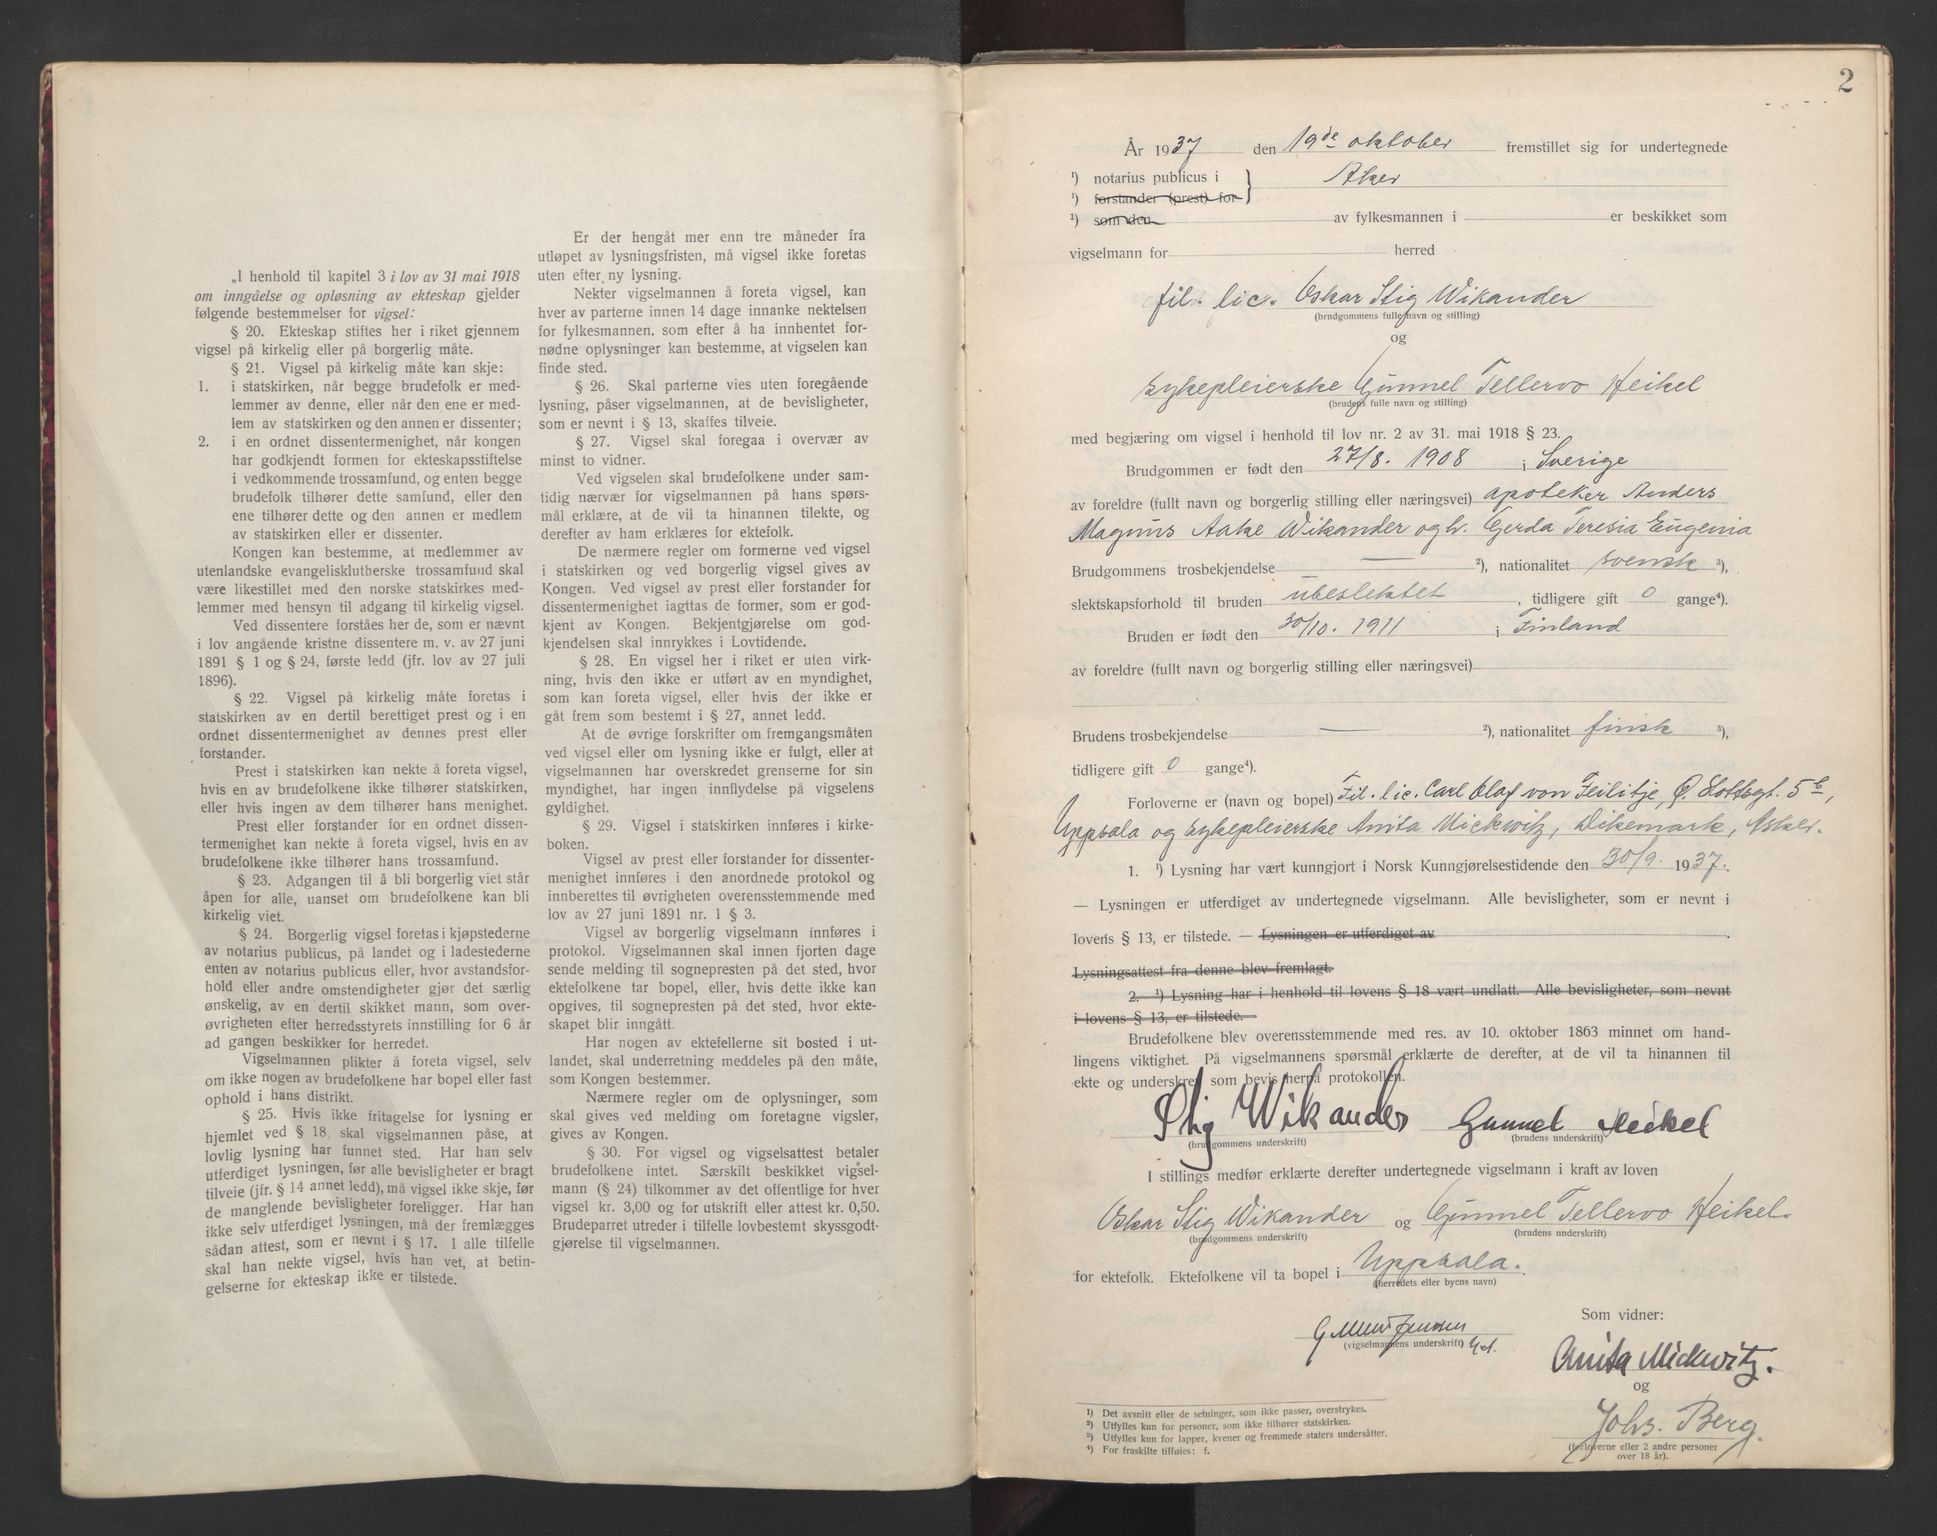 „I henhold til kapitel 3 i lov av 31 mai 1918
om inngåelse og opløsning av ekteskap gjelder
følgende bestemmelser for vigsel:
§ 20. Ekteskap stiftes her i riket gjennem
vigsel på kirkelig eller på borgerlig måte.
§ 21. Vigsel på kirkelig måte kan skje:
1. i statskirken, når begge brudefolk er med-
lemmer av denne, eller når den ene er med-
lem av statskirken og den annen er dissenter;
2. i en ordnet dissentermenighet, når kongen
har godkjendt formen for ekteskapsstiftelse
i vedkommende trossamfund, og enten begge
brudefolk tilhører dette samfund, eller den
ene tilhører dette og den annen er medlem
av statskirken eller er dissenter.
Kongen kan bestemme, at medlemmer av
utenlandske evangelisklutherske trossamfund skal
være likestillet med den norske statskirkes med-
lemmer med hensyn til adgang til kirkelig vigsel.
Ved dissentere forståes her de, som er nævnt
i lov angående kristne dissentere m. v. av 27 juni
1891 § 1 og § 24, første ledd (jfr. lov av 27 juli
1896).
§ 22. Vigsel på kirkelig måte foretas i
statskirken av en dertil berettiget prest og i en
ordnet dissentermenighet av dennes prest eller
forstander.
Prest i statskirken kan nekte å foreta vigsel,
hvis en av brudefolkene ikke tilhører statskirken,
eller hvis ingen av dem tilhører hans menighet.
Prest eller forstander for en ordnet dissen-
termenighet kan nekte å foreta vigsel, hvis en av
brudefolkene ikke tilhører hans trossamfund.
§ 23. Adgangen til å bli borgerlig viet står
åpen for alle, uanset om brudefolkene kan bli
kirkelig viet.
§ 24. Borgerlig vigsel foretas i kjøpstederne
av notarius publicus, på landet og i ladestederne
enten av notarius publicus eller, hvor avstandsfor-
hold eller andre omstendigheter gjør det særlig
ønskelig, av en dertil skikket mann, som over-
øvrigheten efter herredsstyrets innstilling for 6 år
ad gangen beskikker for herredet.
Vigselmannen plikter å foreta vigsel, selv
om ikke nogen av brudefolkene har bopel eller fast
ophold i hans distrikt.
§ 25. Hvis ikke fritagelse for lysning er
hjemlet ved § 18, skal vigselmannen påse, at
lovlig lysning har funnet sted. Har han selv
utferdiget lysningen, før alle bevisligheter er bragt
tilveie (jfr. § 14 annet ledd), må vigsel ikke skje, før
de manglende bevisligheter foreligger. Har han
ikke selv utferdiget lysningen, må der fremlægges
sådan attest, som er nevnt i § 17. I alle tilfelle
skal han nekte vigsel, hvis han vet, at betin-
gelserne for ekteskap ikke er tilstede.
Er der hengåt mer enn tre måneder fra
utløpet av lysningsfristen, må vigsel ikke foretas
uten efter ny lysning.
Nekter vigselmannen å foreta vigsel, kan
hver av parterne innen 14 dage innanke nektelsen
for fylkesmannen, som efter å ha innhentet for-
nødne oplysninger kan bestemme, at vigselen kan
finde sted.
§ 26. Skal parterne vies uten foregående
lysning, påser vigselmannen, at de bevisligheter,
som er nevnt i § 13, skaffes tilveie.
§ 27. Vigsel skal foregaa i overvær av
minst to vidner.
Ved vigselen skal brudefolkene under sam-
tidig nærvær for vigselmannen på hans spørs-
mål erklære, at de vil ta hinannen tilekte, og
derefter av ham erklæres for ektefolk.
De nærmere regler om formerne ved vigsel
i statskirken og ved borgerlig vigsel gives av
Kongen. Ved vigsel av prest eller forstander for
dissentermenighet iagttas de former, som er god-
kjent av Kongen. Bekjentgjørelse om god-
kjendelsen skal innrykkes i Lovtidende.
§ 28. En vigsel her i riket er uten virk-
ning, hvis den ikke er utført av en myndighet,
som kan foreta vigsel, eller hvis der ikke er
gåt frem som bestemt i § 27, annet ledd.
At de øvrige forskrifter om fremgangsmåten
ved vigsel eller om lysning ikke er fulgt, eller at
vigselmannen har overskredet grenserne for sin
myndighet, har ingen innflydelse på vigselens
gyldighet.
§ 29. Vigsel i statskirken innføres i kirke-
boken.
Vigsel av prest eller forstander for dissenter-
menighet innføres i den anordnede protokol og
innberettes til øvrigheten overensstemmende med
lov av 27 juni 1891 nr. 1 § 3.
Vigsel av borgerlig vigselmann innføres i
protokol. Vigselmannen skal innen fjorten dage
sende melding til sognepresten på det sted, hvor
ektefolkene tar bopel, eller, hvis dette ikke kan
opgives, til sognepresten på det sted, hvor ekte-
skapet blir inngått.
Har nogen av ektefellerne sit bosted i ut-
landet, skal underretning meddeles på den måte,
som Kongen bestemmer.
Nærmere regler om de oplysninger, som
skal gives ved melding om foretagne vigsler,
gives av Kongen.
§ 30. For vigsel og vigselsattest betaler
brudefolkene intet. Særskilt beskikket vigsel-
mann (§ 24) tilkommer av det offentlige for hver
vigsel kr. 3,00 og for utskrift eller attest kr. 0,50.
Brudeparret utreder i tilfelle lovbestemt skyssgodt-
gjørelse til vigselmannen.
2
År 1937 den 19de oktober fremstillet sig for undertegnede
¹) notarius publicus i } Aker
¹) forstander (prest) for
¹) som den av fylkesmannen i er beskikket som
vigselmann for herred
fil. lic. Oskar Stig Wikander
(brudgommens fulle navn og stilling)
og
sykepleierske Gunnel Tellervo Heikel
(brudens fulle navn og stilling)
med begjæring om vigsel i henhold til lov nr. 2 av 31. mai 1918 § 23.
Brudgommen er født den 27/8. 1908 i Sverige
av foreldre (fullt navn og borgerlig stilling eller næringsvei) apoteker Anders
Magnus Aake Wikander og h. Gerda Teresia Eugenia
Brudgommens trosbekjendelse — ²), nationalitet svensk ³),
slektskapsforhold til bruden ubeslektet, tidligere gift 0 gange⁴).
Bruden er født den 30/10. 1911 i Finland
av foreldre (fullt navn og borgerlig stilling eller næringsvei)
Brudens trosbekjendelse — ²), nationalitet finsk ³),
tidligere gift 0 gange⁴).
Forloverne er (navn og bopel) Fil. lic. Carl Olof von Feilitje, Ø. Slottsgt. 5 b,
Uppsala og sykepleierske Anita Mickwitz, Dikemark, Asker.
1. ¹) Lysning har vært kunngjort i Norsk Kunngjørelsestidende den 30/9. 1937.
— Lysningen er utferdiget av undertegnede vigselmann. Alle bevisligheter, som er nevnt i
lovens § 13, er tilstede. — Lysningen er utferdiget av
Lysningsattest fra denne blev fremlagt.
2. ¹) Lysning har i henhold til lovens § 18 vært undlatt. Alle bevisligheter, som nevnt
i lovens § 13, er tilstede.
Brudefolkene blev overensstemmende med res. av 10. oktober 1863 minnet om hand-
lingens viktighet. På vigselmannens spørsmål erklærte de derefter, at de vil ta hinannen til
ekte og underskrev som bevis herpå protokollen.
Stig Wikander Gunnel Heikel
(brudgommens underskrift) (brudens underskrift)
I stillings medfør erklærte derefter undertegnede vigselmann i kraft av loven
Oskar Stig Wikander og Gunnel Tellervo Heikel.
(brudgommens underskrift) (brudens underskrift)
for ektefolk. Ektefolkene vil ta bopel i Uppsala.
(herredets eller byens navn)
Som vidner:
(vigselmannens underskrift)
Anita Mickwitz.
og
Johs. Berg.
(forloverne eller 2 andre personer
over 18 år).
1) Det avsnitt eller de setninger, som ikke passer, overstrykes.
²) Utfylles kun for personer, som ikke tilhører statskirken.
³) Utfylles kun for lapper, kvener og fremmede staters undersåtter.
⁴) For fraskilte tilføies: f.